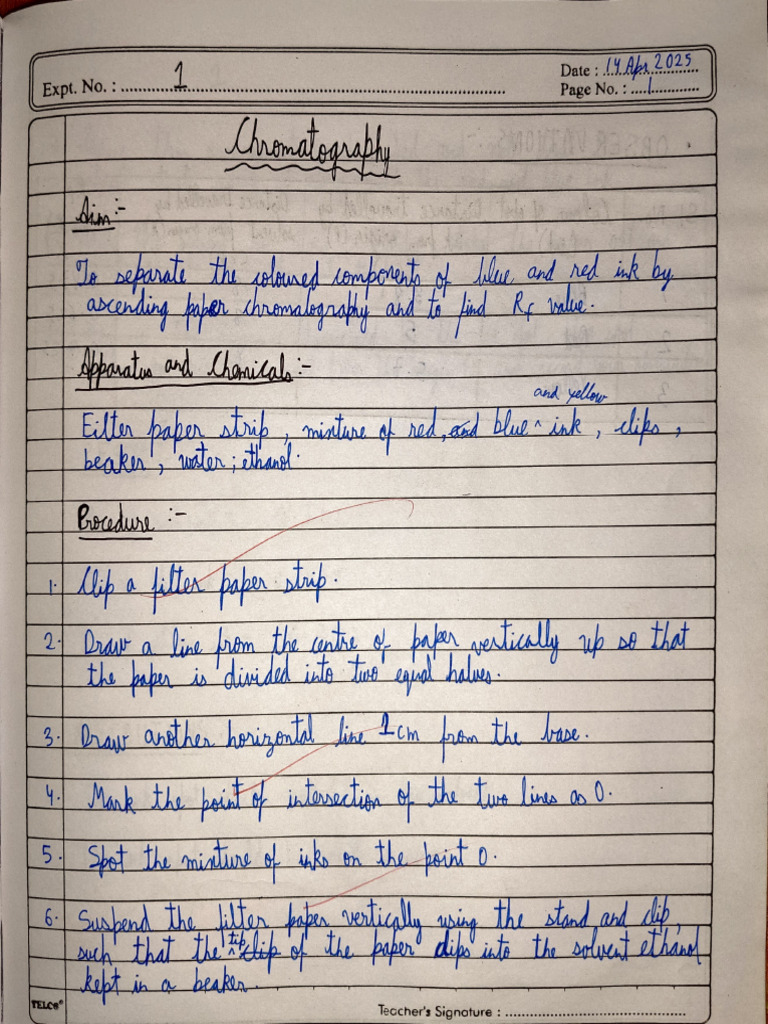 Expt. No. : 1
Date : 14 Apr 2025
Page No. : 1
Chromatography
Aim:-
To separate the coloured components of blue and red ink by
ascending paper chromatography and to find Rf value.
Apparatus and Chemicals:-
and yellow
Filter paper strip, mixture of red, and blue ^ ink, clips,
beaker, water; ethanol.
Procedure :-
1. Clip a filter paper strip.
2. Draw a line from the centre of paper vertically up so that
the paper is divided into two equal halves.
3. Draw another horizontal line 1cm from the base.
4. Mark the point of intersection of the two lines as O.
5. Spot the mixture of inks on the point O.
6. Suspend the filter paper vertically using the stand and clip,
such that the ^ tip clip of the paper dips into the solvent ethanol
kept in a beaker.
TELCO®
Teacher's Signature :